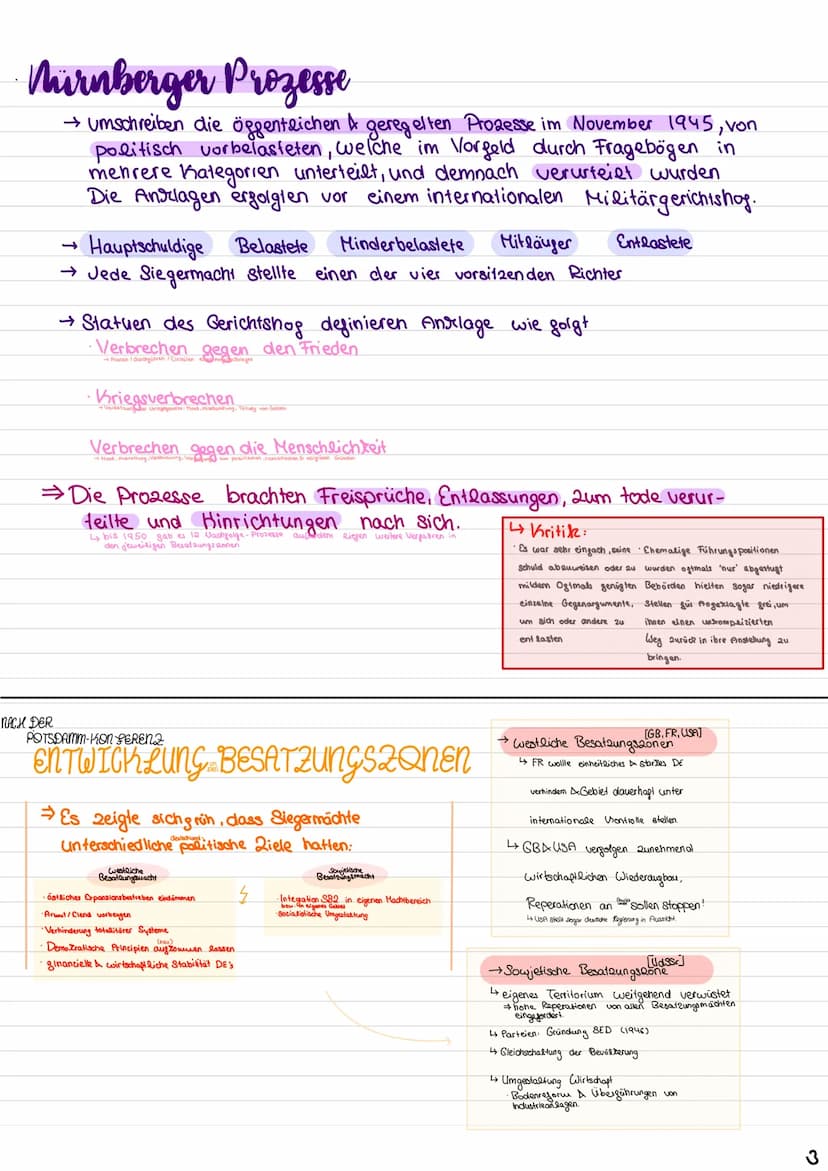 Nürnberger Prozesse
→ umschreiben die öffentlichen & geregelten Prozesse im November 1945, von
politisch vorbelasteten, welche im Vorfeld durch Fragebögen in
mehrere Kategorien unterteilt, und demnach verurteilt wurden
Die Anklagen erfolgten vor einem internationalen Militärgerichtshof.
→ Hauptschuldige Belastete Minderbelastete Mitläufer Entlastete
→ Jede Siegermacht stellte einen der vier vorsitzenden Richter
→ Statuen des Gerichtshof definieren Anklage wie folgt
· Verbrechen gegen den Frieden
· Kriegsverbrechen
Verbrechen gegen die Menschlichkeit
⇒ Die Prozesse brachten Freisprüche, Entlassungen, zum tode verur-
teilte und Hinrichtungen nach sich.
↳ bis 1950 gab es 12 Nachfolge-Prozesse außerdem liefen weitere Verfahren in
den jeweiligen Besatzungszonen
↳ Kritik:
· Es war sehr einfach, seine
schuld abzuweisen oder zu
mildern Oftmals genügten
einzelne Gegenargumente,
um sich oder andere zu
entlasten
· Ehemalige Führungspositionen
wurden oftmals 'nur' abgestuft
Behörden hielten sogar niedrigere
Stellen für Angeklagte frei, um
ihnen einen unkomplizierten
Weg zurück in ihre Anstellung zu
bringen.
NACH DER
POTSDAMM-KONFERENZ
ENTWICKLUNG DER BESATZUNGSZONEN
⇒ Es zeigte sich früh, dass Siegermächte
unterschiedliche politische Ziele hatten:
Westliche
Besatzungsmacht
· östliches Expansionsbestreben eindämmen
· Armut/Elend vorbeugen
· Verhinderung totalitärer Systeme
(neu)
· Demokratische Prinzipien aufkommen lassen
· finanzielle & wirtschaftliche Stabilität DE's
Sowjetische
Besatzungsmacht
· Integration SBZ in eigenen Machtbereich
bzw. in eigenes Gebiet
· Sozialistische Umgestaltung
[GB, FR, USA]
→ westliche Besatzungszonen
↳ FR wollte einheitliches & starkes DE
verhindern & Gebiet dauerhaft unter
internationale Kontrolle stellen
↳ GB & USA verfolgen zunehmend
wirtschaftlichen Wiederaufbau,
Reperationen an sollen stoppen!
↳ USA stellt sogar deutsche Regierung in Aussicht
[UdSSR]
→ Sowjetische Besatzungszone
↳ eigenes Territorium weitgehend verwüstet
⇒ hohe Reperationen von allen Besatzungsmächten
eingefordert
↳ Parteien: Gründung SED (1946)
↳ Gleichschaltung der Bevölkerung
↳ Umgestaltung Wirtschaft
· Bodenreform & Überführungen von
Industrieanlagen.
3